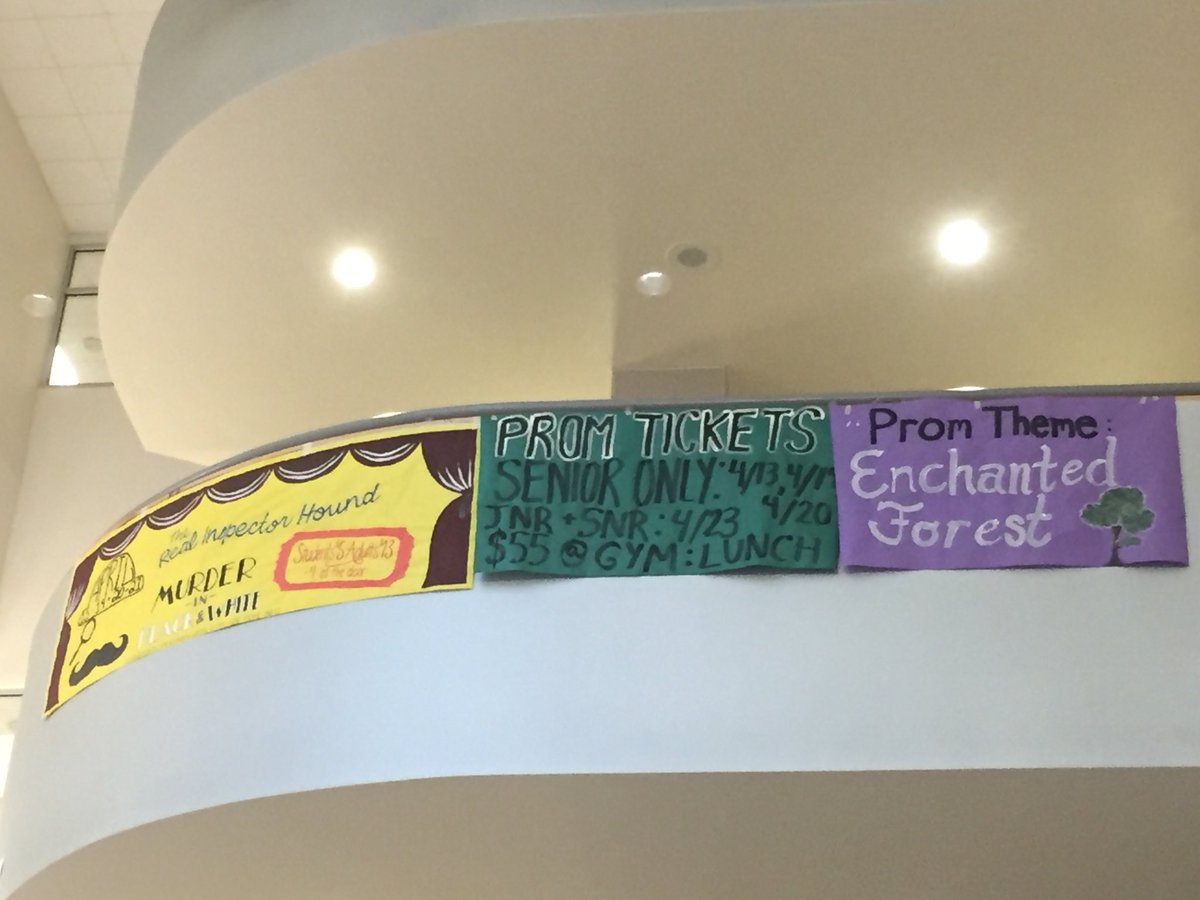 The
Real Inspector Hound
MURDER
-IN-
BLACK & WHITE
Students $5 Adults
at the door
PROM TICKETS
SENIOR ONLY: 4/13, 4/17
4/20
JNR + SNR: 4/23
$55 @ GYM: LUNCH
Prom Theme:
Enchanted
Forest